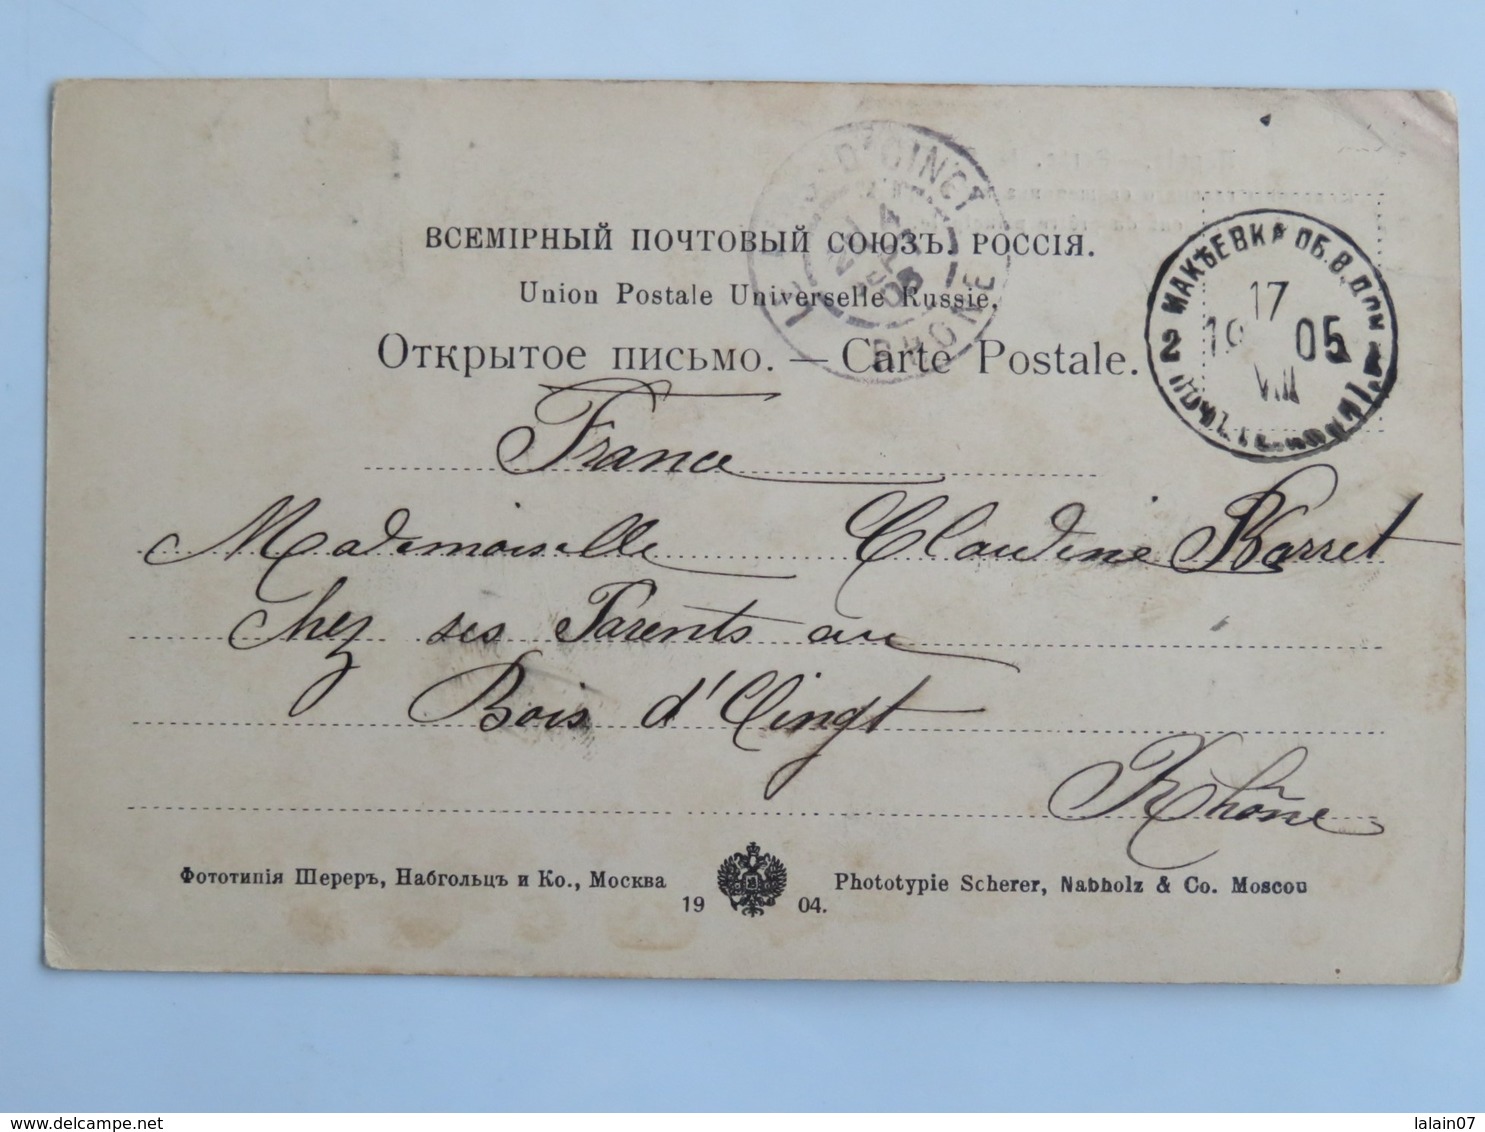 ВСЕМІРНЫЙ ПОЧТОВЫЙ СОЮЗЪ. РОССІЯ.
Union Postale Universelle Russie.
Открытое письмо. — Carte Postale.
МАКѢЕВКА ОБ.В.ДОН.
17
19 05
VIII
2
D'OINGT
RHONE
05
France
Mademoiselle Claudine Barret
Chez ses Parents au
Bois d'Oingt
Rhône
Фототипія Шереръ, Набгольцъ и Ко., Москва
19 04.
Phototypie Scherer, Nabholz & Co. Moscou
© www.delcampe.net
lalain07